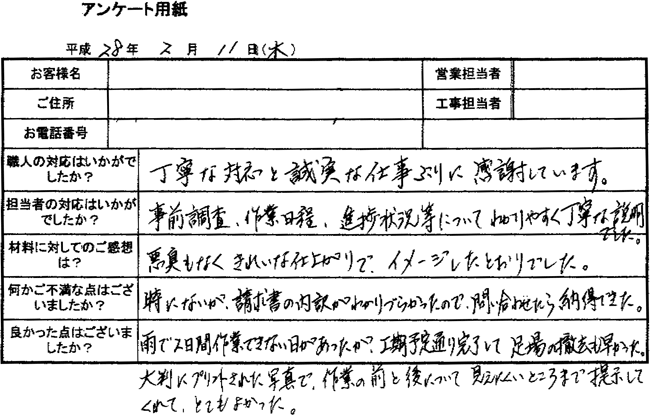 アンケート用紙
平成 28年 2月 11日(木)
お客様名 営業担当者
ご住所 工事担当者
お電話番号
職人の対応はいかがで
したか？
丁寧な対応と誠実な仕事ぶりに感謝しています。
担当者の対応はいかが
でしたか？
事前調査、作業日程、進捗状況等についてわかりやすく丁寧な説明
でした。
材料に対してのご感想
は？
悪臭もなくきれいな仕上がりで、イメージしたとおりでした。
何かご不満な点はござ
いましたか？
特にないが、請求書の内訳がわかりづらかったので、問い合わせたら納得できた。
良かった点はございま
したか？
雨で2日間作業できない日があったが、工期予定通り完了して足場の撤去も早かった。
大判にプリントされた写真で、作業の前と後について見えにくいところまで提示して
くれて、とてもよかった。